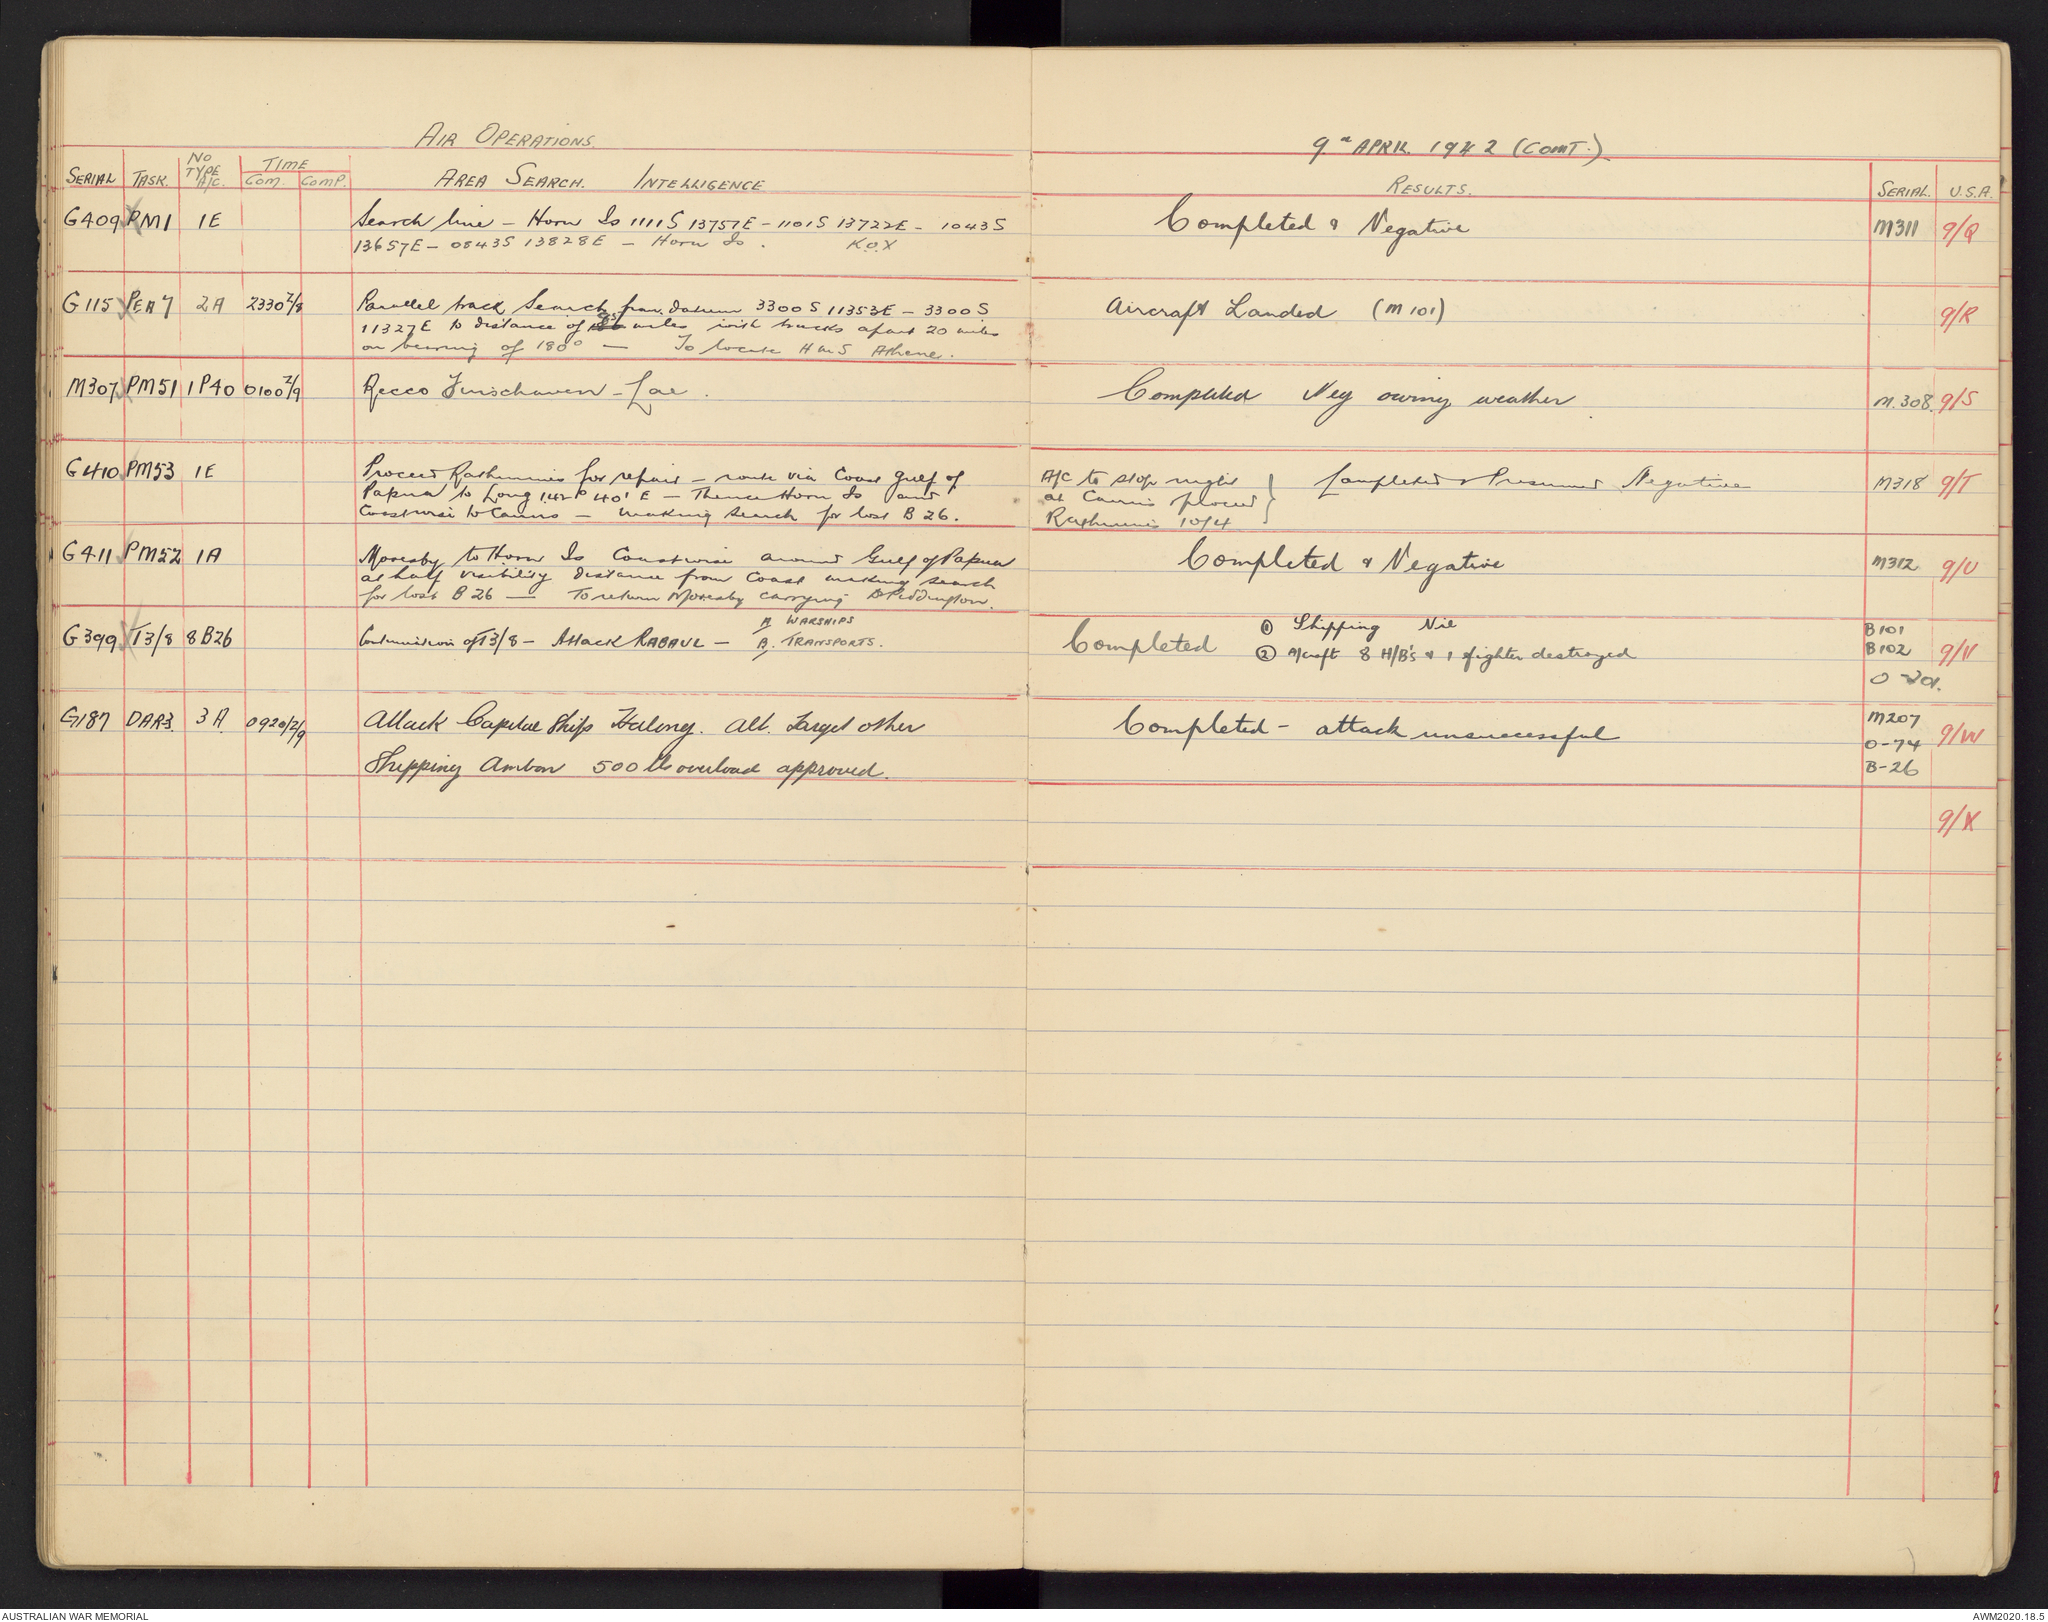 AIR OPERATIONS
9TH APRIL 1942 (CONT.)
SERIAL TASK. NO TYPE A/C. TIME COM. COMP. AREA SEARCH. INTELLIGENCE RESULTS. SERIAL. U.S.A.
G409 PM1 1E Search line – Horn Is 1111S 13757E – 1101S 13722E – 1043S Completed & Negative M311 9/Q
13657E – 0843S 13828E – Horn Is. K.O.X
G115 PEA7 2A 2330 2/8 Parallel track Search from datum 3300S 11353E – 3300S Aircraft Landed (M101) 9/R
11327E to distance of miles with tracks apart 20 miles
on bearing of 180° — To locate HMS Athene.
M307 PM51 1P40 0100 2/9 Recco Finschaven – Lae. Completed Neg owing weather M.308. 9/S
G410 PM53 1E Proceed Rathmines for repair – route via Coast Gulf of A/C to stop night Completed & Presumed Negative M318 9/T
Papua to Long 142° 40' E – Thence Horn Is and at Cairns proceed
Coastwise to Cairns – making search for lost B26. Rathmines 10/4
G411 PM52 1A Moresby to Horn Is Coastwise around Gulf of Papua Completed & Negative M312 9/U
at half visibility distance from Coast making search
for lost B26 — To return Moresby carrying Piddington.
G399 T3/8 8B26 Continuation of T3/8 – Attack RABAUL – A. WARSHIPS Completed ① Shipping Nil B101
B. TRANSPORTS. ② A/craft 8 H/B's & 1 fighter destroyed B102 9/V
O
G187 DAR3. 3A. 0920/2/9 Attack Capital Ship Halong. Alt. Target other Completed – attack unsuccessful M207
O-74 9/W
Shipping Ambon 500 lbs overload approved. B-26
9/X
AUSTRALIAN WAR MEMORIAL
AWM2020.18.5